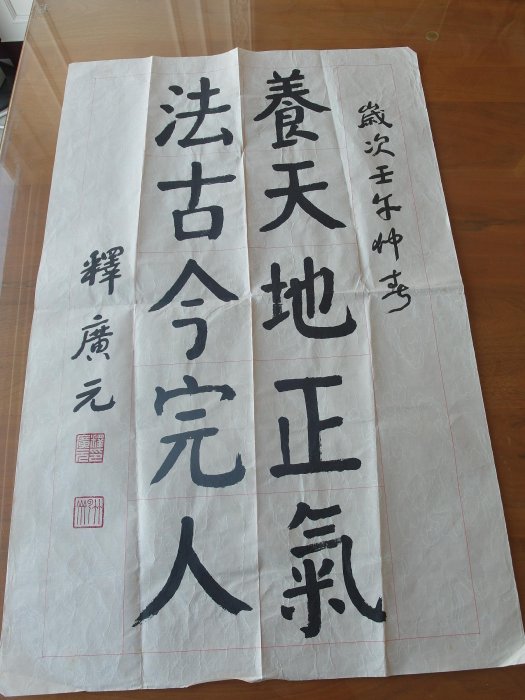 歲次壬午仲春
養天地正氣
法古今完人
釋廣元